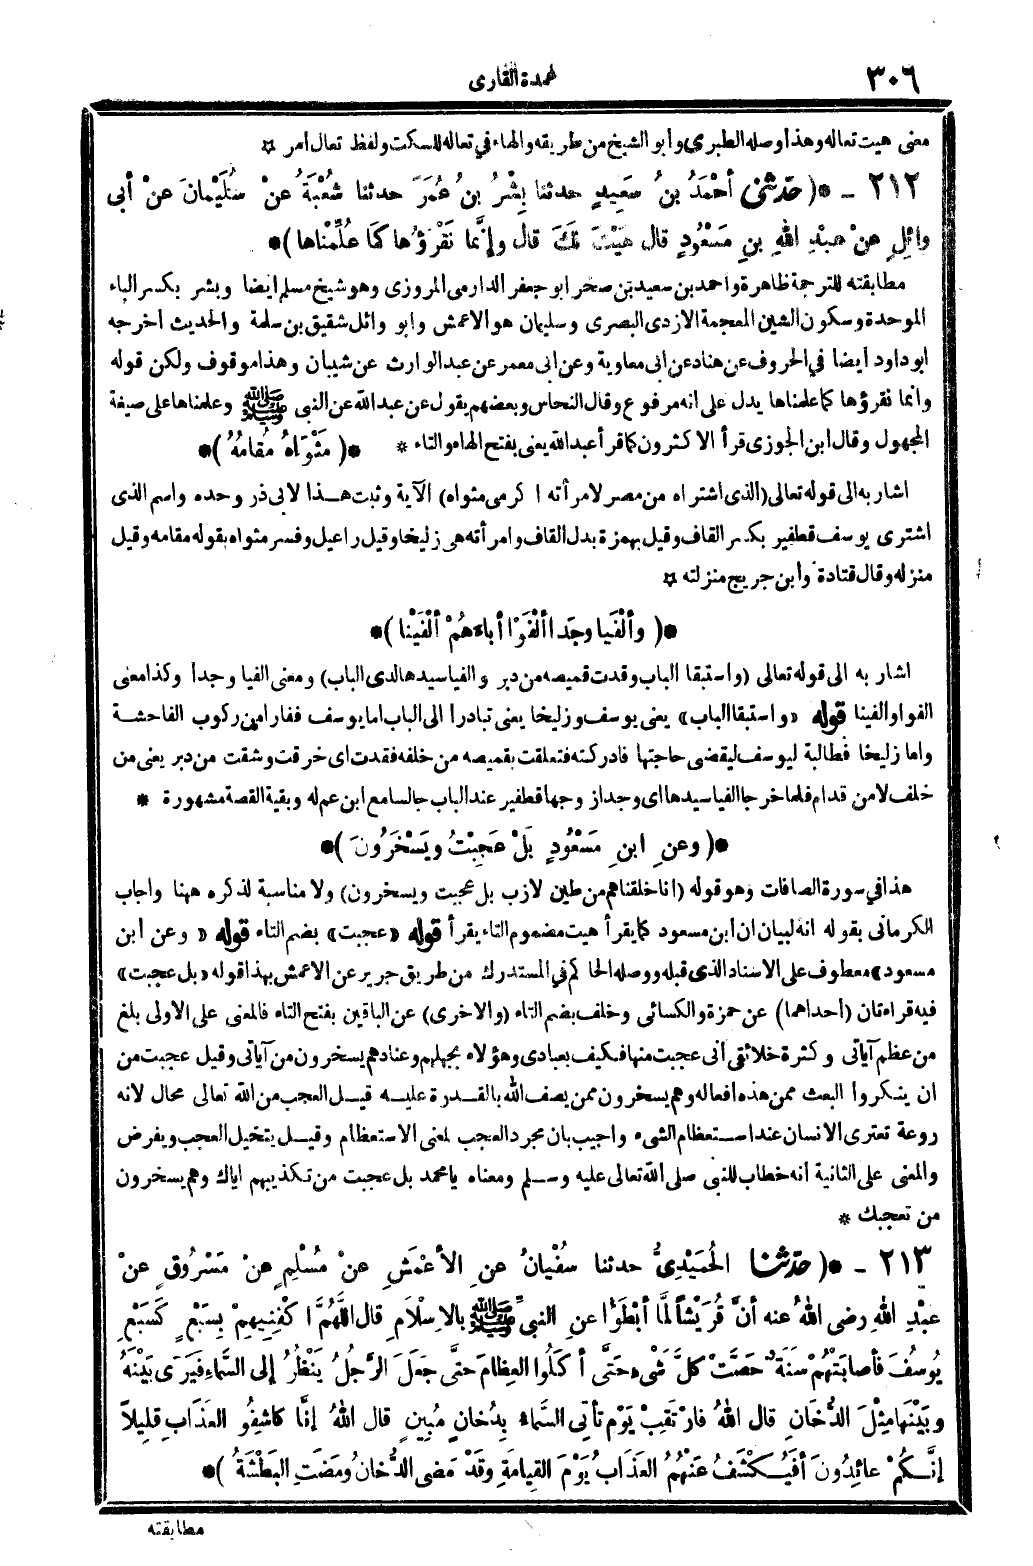 ٣٠٦
عمدة القارى
معنى هيت تعاله وهذا وصله الطبرى وأبو الشيخ من طريقه والهاء في تعاله للسكت ولفظ تعال أمر ✡
٢١٢ ـ *( حَدَّثني أحْمَدُ بنُ سَعِيدٍ حدثنا بِشْرُ بنُ عُمَرَ حدثنا شُعْبَةُ عنْ سُلَيْمانَ عنْ أبي
وائِلٍ عنْ عبْدِ اللهِ بنِ مَسْعُودٍ قال هَيْتَ لَكَ قال وإنَّما نَقْرَؤُها كَما عُلِّمْناها )*
مطابقته للترجمة ظاهرة واحمد بن سعيد بن صخر ابو جعفر الدارمى المروزى وهو شيخ مسلم ايضا وبشر بكسر الباء
الموحدة وسكون الشين المعجمة الازدى البصرى وسليمان هو الاعمش وابو وائل شقيق بن سلمة والحديث اخرجه
ابو داود أيضا في الحروف عن هناد عن ابى معاوية وعن ابى معمر عن عبد الوارث عن شيبان وهذا موقوف ولكن قوله
وانما نقرؤها كما علمناها يدل على انه مرفوع وقال النحاس وبعضهم يقول عن عبد الله عن النبى ﷺ وعلمناها على صيغة
المجهول وقال ابن الجوزى قرأ الاكثرون كما قرأ عبد الله يعنى بفتح الهاء والتاء * *( مَثْوَاهُ مُقامُهُ )*
اشار به الى قوله تعالى (الذى اشتراه من مصر لامرأته اكرمى مثواه) الآية وثبت هذا لابى ذر وحده واسم الذى
اشترى يوسف قطفير بكسر القاف وقيل بهمزة بدل القاف وامرأته هى زليخا وقيل راعيل وفسر مثواه بقوله مقامه وقيل
منزله وقال قتادة وابن جريج منزلته ✡
*( وألْفَيا وجَدا ألْفَوْا أباءَهُمْ ألْفَيْنا )*
اشار به الى قوله تعالى (واستبقا الباب وقدت قميصه من دبر والفيا سيدها لدى الباب) ومعنى الفيا وجدا وكذا معنى
الفوا والفينا قوله «واستبقا الباب» يعنى يوسف وزليخا يعنى تبادرا الى الباب اما يوسف ففارا من ركوب الفاحشة
واما زليخا فطالبة ليوسف ليقضى حاجتها فادركته فتعلقت بقميصه من خلفه فقدت اى خرقت وشقت من دبر يعنى من
خلف لا من قدام فلما خرجا الفيا سيدها اى وجدا زوجها قطفير عند الباب جالسا مع ابن عم له وبقية القصة مشهورة *
*( وعنِ ابنِ مَسْعُودٍ بَلْ عَجِبْتُ ويَسْخَرُونَ )*
هذا فى سورة الصافات وهو قوله (انا خلقناهم من طين لازب بل عجبت ويسخرون) ولا مناسبة لذكره ههنا واجاب
الكرمانى بقوله انه لبيان ان ابن مسعود كما يقرأ هيت مضموم التاء يقرأ قوله «عجبت» بضم التاء قوله «وعن ابن
مسعود» معطوف على الاسناد الذى قبله ووصله الحاكم في المستدرك من طريق جرير عن الاعمش بهذا قوله «بل عجبت»
فيه قراءتان (احداهما) عن حمزة والكسائى وخلف بضم التاء (والاخرى) عن الباقين بفتح التاء فالمعنى على الاولى بلغ
من عظم آياتى وكثرة خلائقى أنى عجبت منها فكيف بعبادى وهؤلاء بجهلهم وعنادهم يسخرون من آياتى وقيل عجبت من
ان ينكروا البعث ممن هذه افعاله وهم يسخرون ممن يصف الله بالقدرة عليه قيل العجب من الله تعالى محال لانه
روعة تعترى الانسان عند استعظام الشىء واجيب بان مجرد العجب لمعنى الاستعظام وقيل يتخيل العجب ويفرض
والمعنى على الثانية أنه خطاب للنبى صلى الله تعالى عليه وسلم ومعناه يا محمد بل عجبت من تكذيبهم اياك وهم يسخرون
من تعجبك *
٢١٣ ـ *( حَدَّثنا الحُمَيْدِىُّ حدثنا سُفْيانُ عنِ الأعْمَشِ عنْ مُسْلِمٍ عنْ مَسْرُوقٍ عنْ
عبْدِ اللهِ رضى اللهُ عنه أنَّ قُرَيْشاً لَمَّا أبْطَؤُا عنِ النبىِّ ﷺ بالإسْلاَمِ قال اللَّهُمَّ اكْفِنِيهِمْ بِسَبْعٍ كَسَبْعِ
يُوسُفَ فأصابَتْهُمْ سَنَةٌ حَصَّتْ كلَّ شَىْءٍ حَتَّى أكَلُوا العِظامَ حتَّى جعَلَ الرَّجُلُ يَنْظُرُ إلى السَّماءِ فيَرَى بَيْنَهُ
وبَيْنَها مِثْلَ الدُّخانِ قال اللهُ فارْتَقِبْ يَوْمَ تأتى السَّماءُ بِدُخانٍ مُبِينٍ قال اللهُ إنَّا كاشِفُو العَذَابِ قلِيلاً
إنَّكُمْ عائِدُونَ أفَيُكْشَفُ عنْهُمُ العَذَابُ يَوْمَ القِيامَةِ وقَدْ مَضى الدُّخانُ ومَضَتِ البَطْشَةُ )*
مطابقته